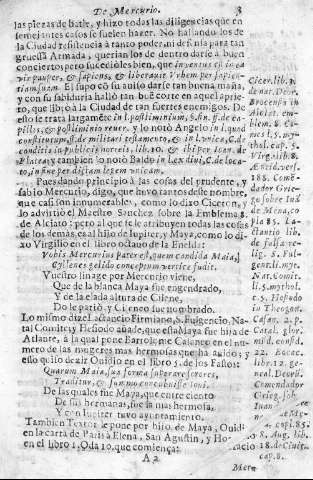 De Mercurio. 3
las piezas de batir, y hizo todas las diligencias que en
semejantes casos se suelen hazer. No hallando los de
la Ciudad resistencia à tanto poder, ni defensa para tan
gruessa Armada, querian los de dentro darse à buen
concierto; pero sucedioles bien, que inventus est in ea
vir pauper, & sapiens, & liberavit Vrbem per sapien-
tiam suam. El supo cõ su aviso darse tan buena maña,
y con su sabiduria hallò tan buẽ corte en aquel aprie-
to, que librò à la Ciudad de tan fuertes enemigos. De
esto se trata largamẽte in l. postliminium,
pillos, & postliminio rever. y lo notò Angelo in l. quod
constitutum, ff. de militari testamento, & in l. unica, C. de
Platea; y tambien lo notò Baldo in lex divi, C. de loca-
to, in fine per dictam legem unicam.
Pues dando principio à las cosas del prudente, y
sabio Mercurio, digo, que huvo tantos deste nombre,
que casi son innumerables, como lo dize Ciceron, y
lo advirtiò el Maestro Sanchez sobre la Emblema 8.
de Alciato; pero al que se le atribuyen todas las cosas
de los demas, es al hijo de Iupiter, y Maya, como lo di-
xo Virgilio en el libro octauo de la Eneida:
Vobis Mercurius pater est, quem candida Maia,
Cyllenes gelido conceptum vertice fudit.
Vuestro linage por Mercurio viene,
Que de la blanca Maya fue engendrado,
Y de la elada altura de Cilene,
Do le pariò, y Cireneo fue nombrado.
Lo mismo dize Lactancio Firmiano, S. Fulgencio, Na-
tal Comite, y Hesiodo añade, que esta Maya fue hija de
Atlante, à la qual pone Bartolome Caseneo en el nu-
mero de las mugeres mas hermosas que ha auido; y
esso quiso dezir Ouidio en el libro 5. de los Fastos:
Quarum Maia, suas forma superavit sorores,
Traditur, & summo concubuisse Ioui.
De las quales fue Maya, que entre ciento
De sus hermanas, fue la mas hermosa,
Y con Iupiter tuvo ayuntamiento.
Tambien Textor le pone por hijo de Maya, Ouidi-
en la carta de Paris à Elena, San Agustin, y Ho-
en el libro 1. Oda 10. que comiença:
A 2
Mer-
Cicer. lib. 3.
de nat. Deor.
Brocensis in
Alciat. em-
blem. 8. Co-
mes l. 5. my-
thol. cap. 5.
Virg. lib. 8.
Æneid. vers.
188. Comen-
dador Grie-
go sobre Iuã
de Mena, co
pla 85. La-
ctantio lib.
de falsa re-
lig. S. Ful-
gent. li. my.
Nat. Comit.
li. 5. mythol.
c. 5. Hesiodo
in Theogon.
Casen. 2. p.
Catal. glor.
mũd. consid.
22. Bocac.
libr. 12. ge-
neal. Deor.
Comendador
Grieg. sob.
Iuan
de Me-
cop. 85.
8. Aug. lib.
18. de Ciuit.
cap. 8.